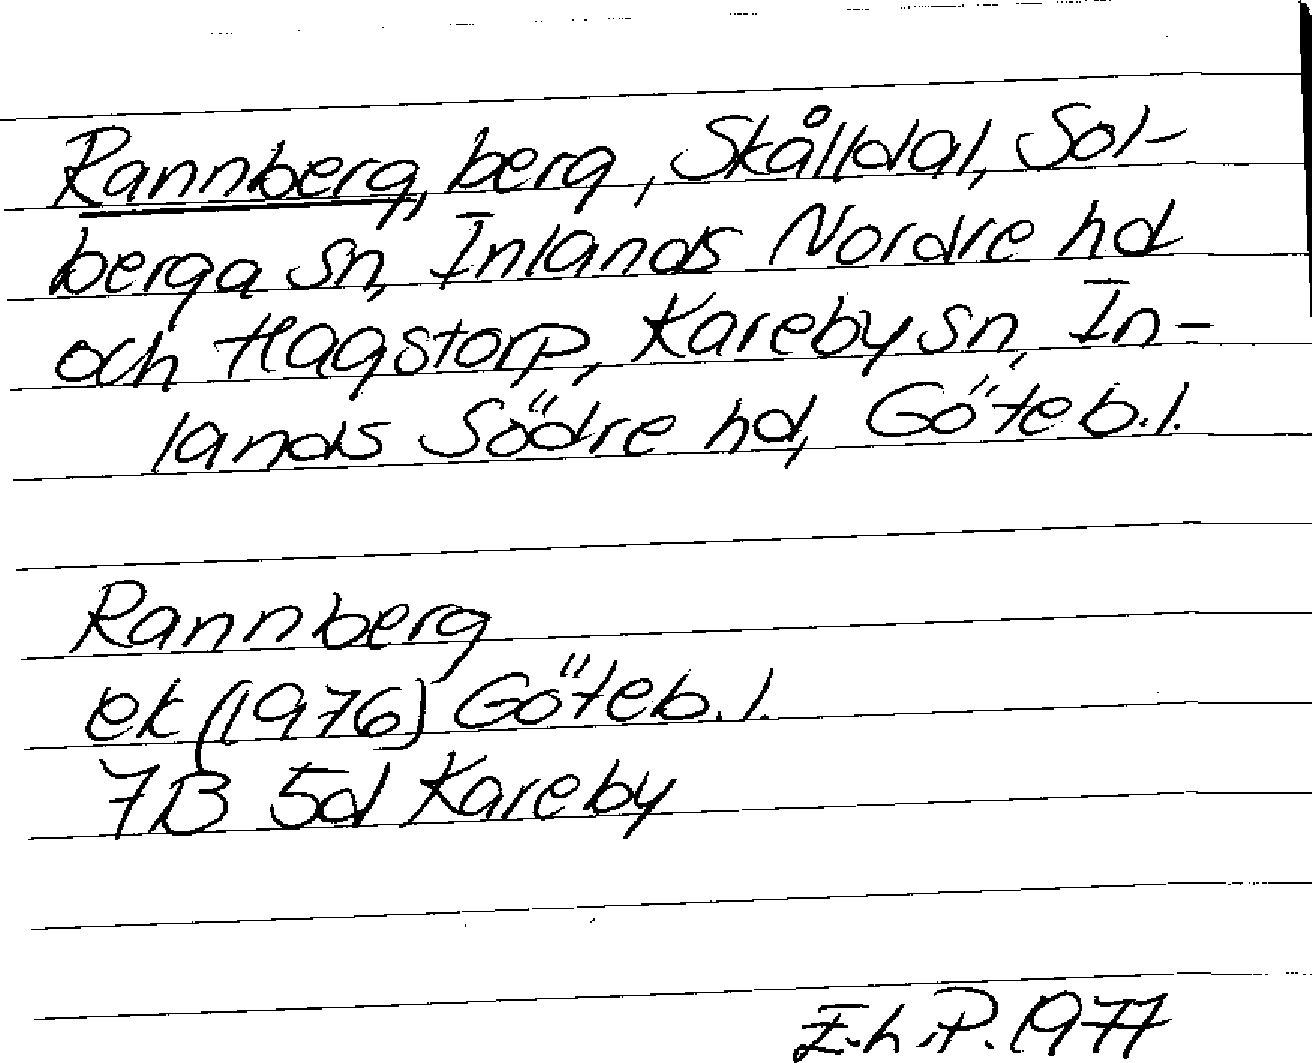 Rannberg, berg, Skålldal, Sol-
berga sn, Inlands Nordre hd
och Hagstorp, Kareby sn, In-
lands Södre hd, Göteb.l.
Rannberg
ek (1976) Göteb.l.
7B 5d Kareby
E.h.P. 1977